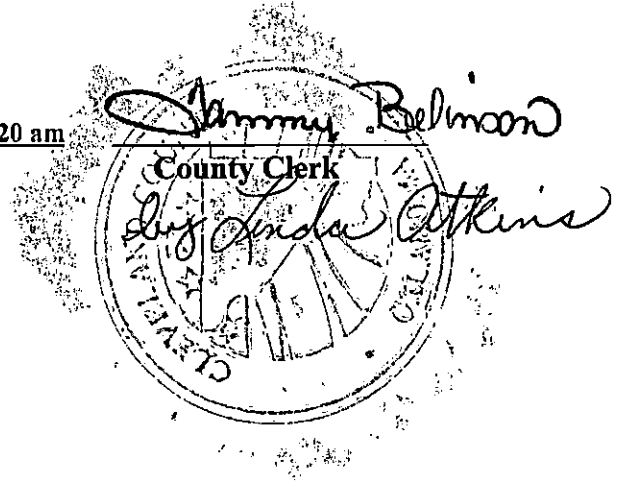 20 am
Tammy Belinson
County Clerk
by Linda Atkins
CLEVELAND